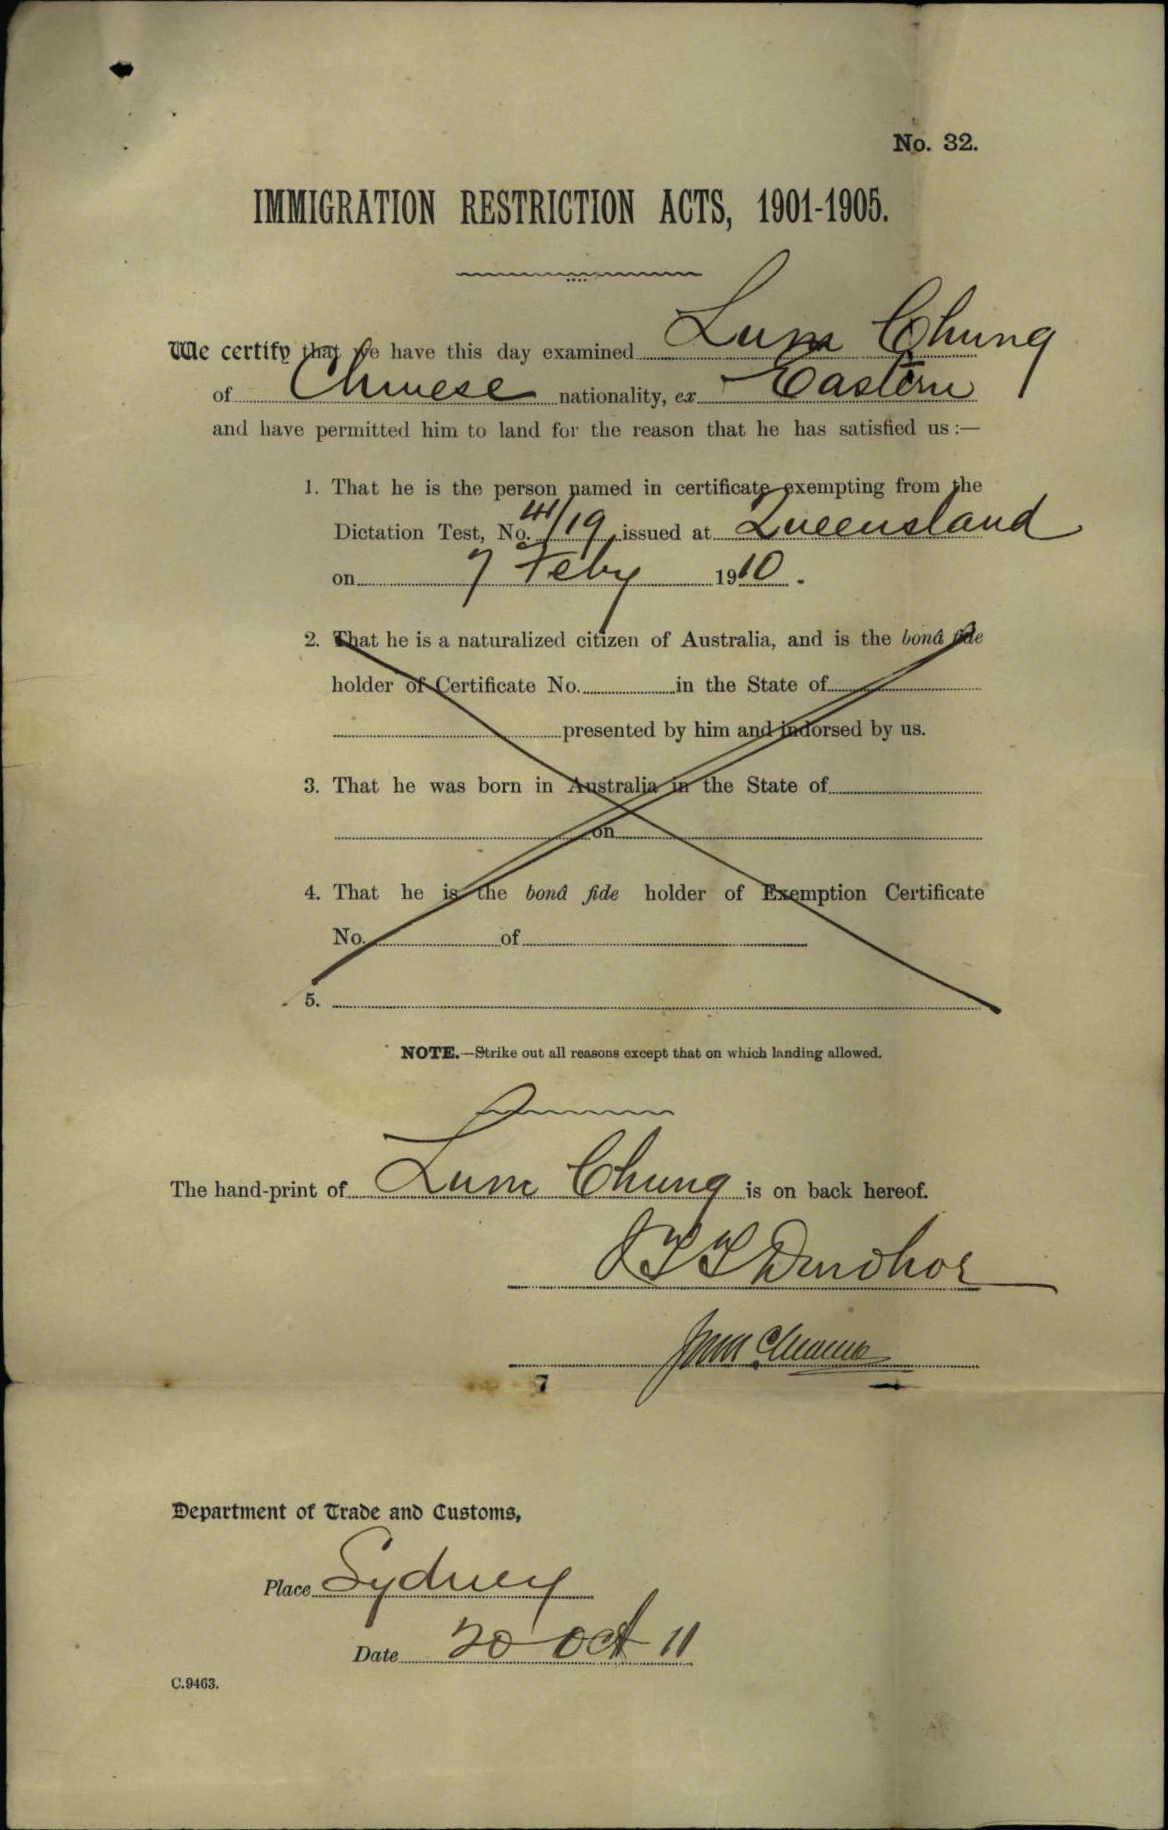 No. 32.
IMMIGRATION RESTRICTION ACTS, 1901-1905.
We certify that we have this day examined Lum Chung
of Chinese nationality, ex Eastern
and have permitted him to land for the reason that he has satisfied us :—
1. That he is the person named in certificate exempting from the
Dictation Test, No. /19 issued at Queensland
on 7 Feby 1910.
2. That he is a naturalized citizen of Australia, and is the bonâ fide
holder of Certificate No. in the State of
presented by him and indorsed by us.
3. That he was born in Australia in the State of
on
4. That he is the bonâ fide holder of Exemption Certificate
No. of
5.
NOTE.—Strike out all reasons except that on which landing allowed.
The hand-print of Lum Chung is on back hereof.
7
Department of Trade and Customs,
Place Sydney
Date 20 Oct 11
C.9463.